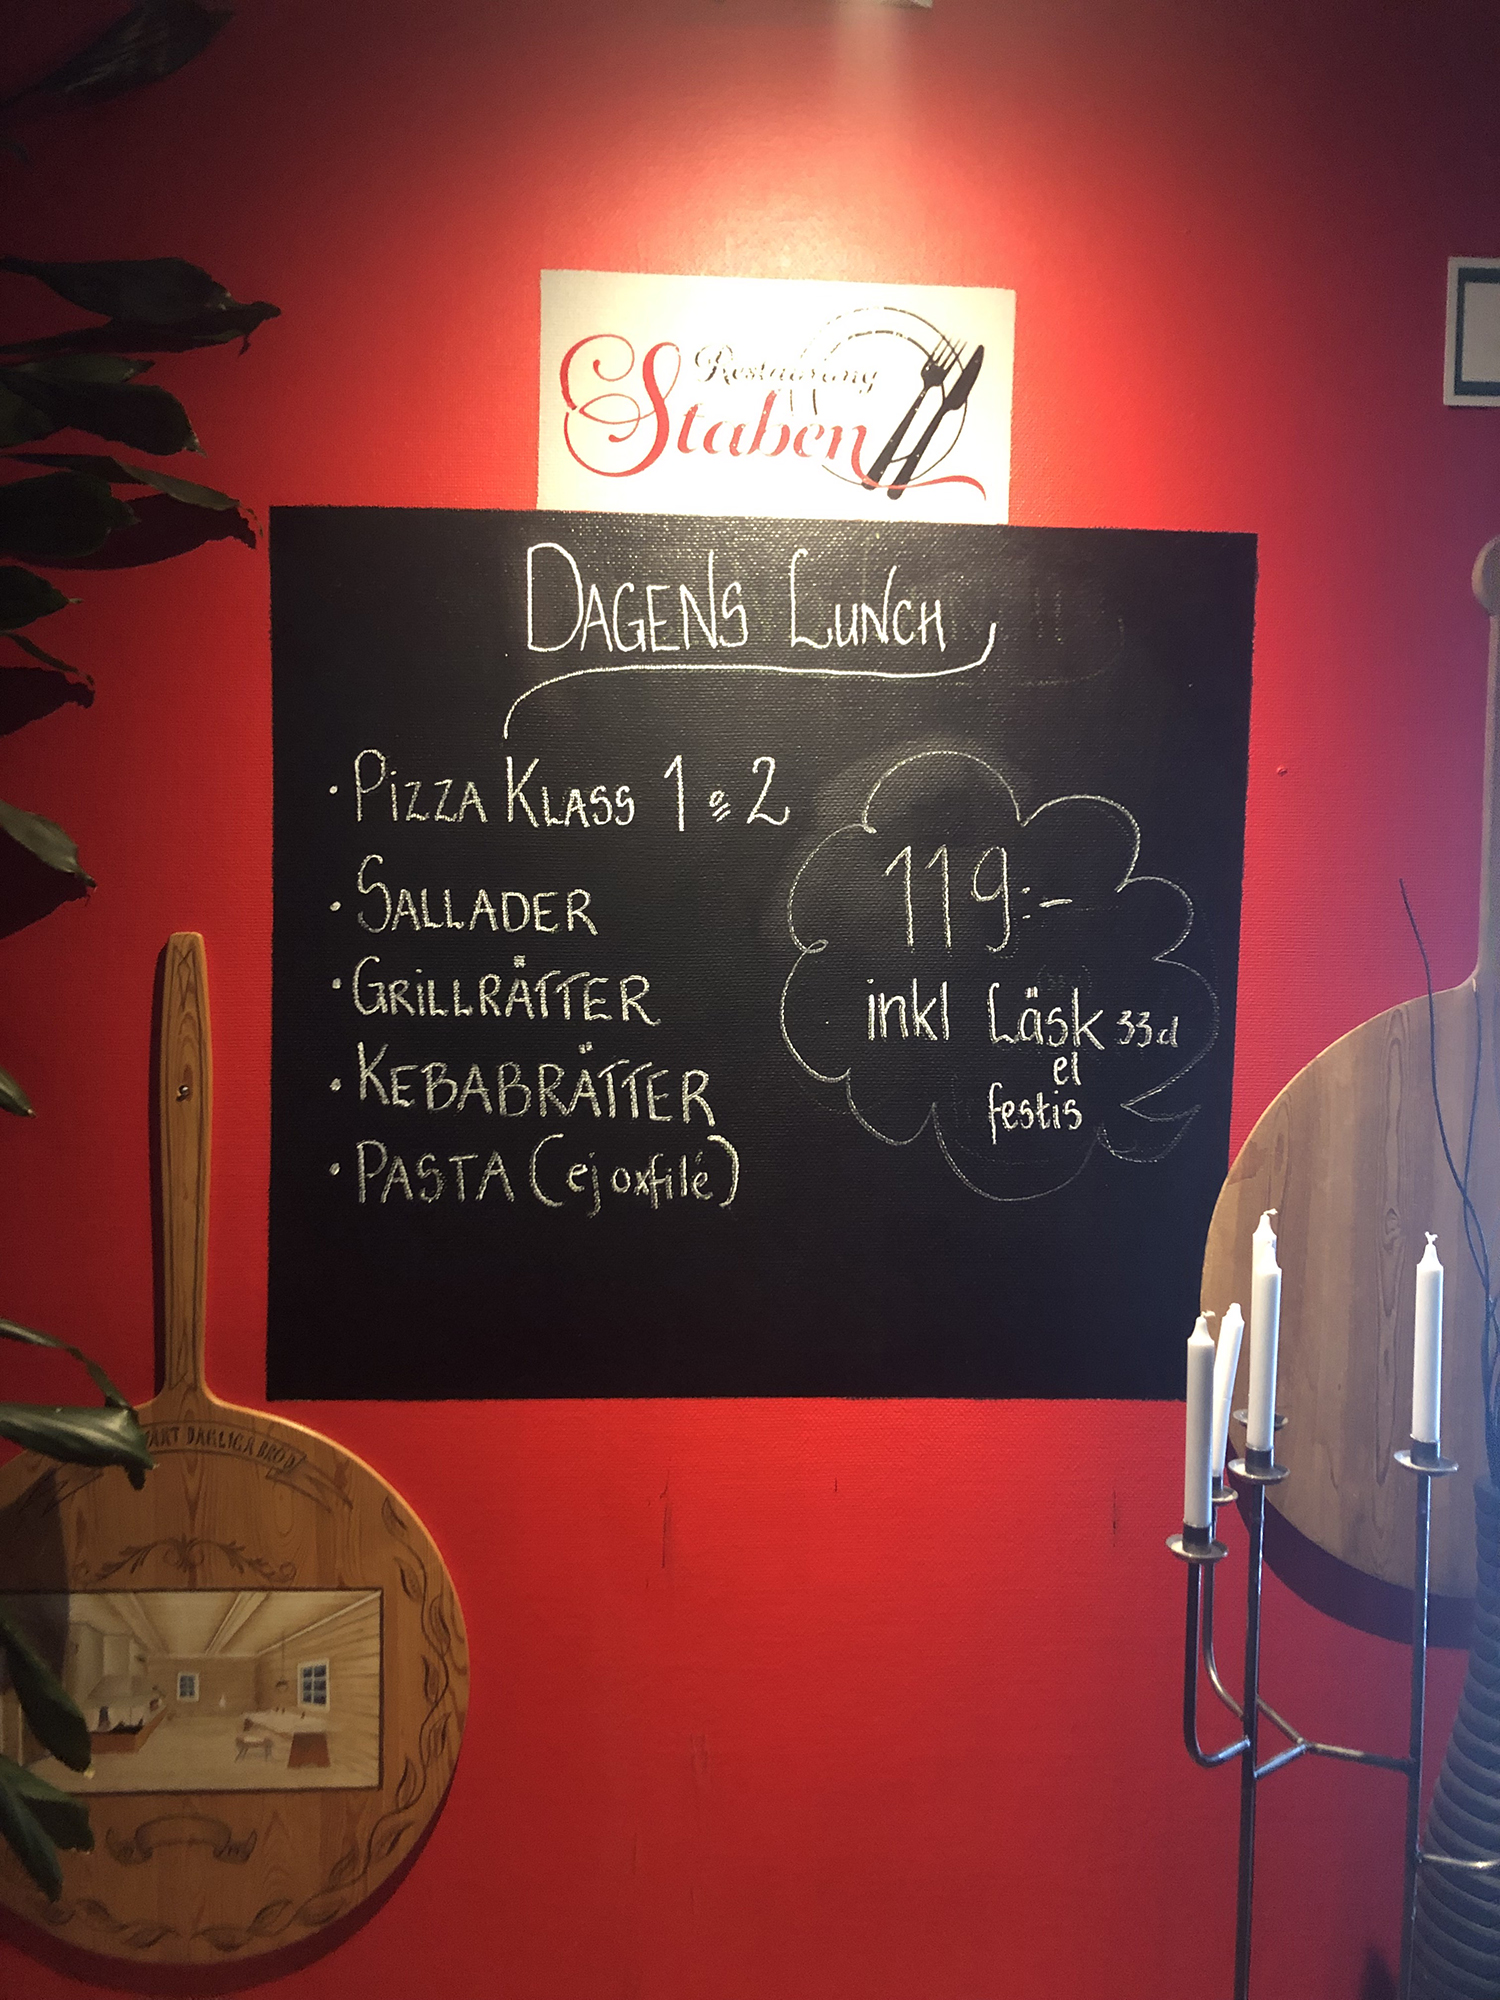 Restaurang
Staben
DAGENS LUNCH
· PIZZA KLASS 1 o 2
· SALLADER
· GRILLRÄTTER
· KEBABRÄTTER
· PASTA (ej oxfilé)
119:-
inkl Läsk 33cl
el
festis
DAHLIGA BRÖD